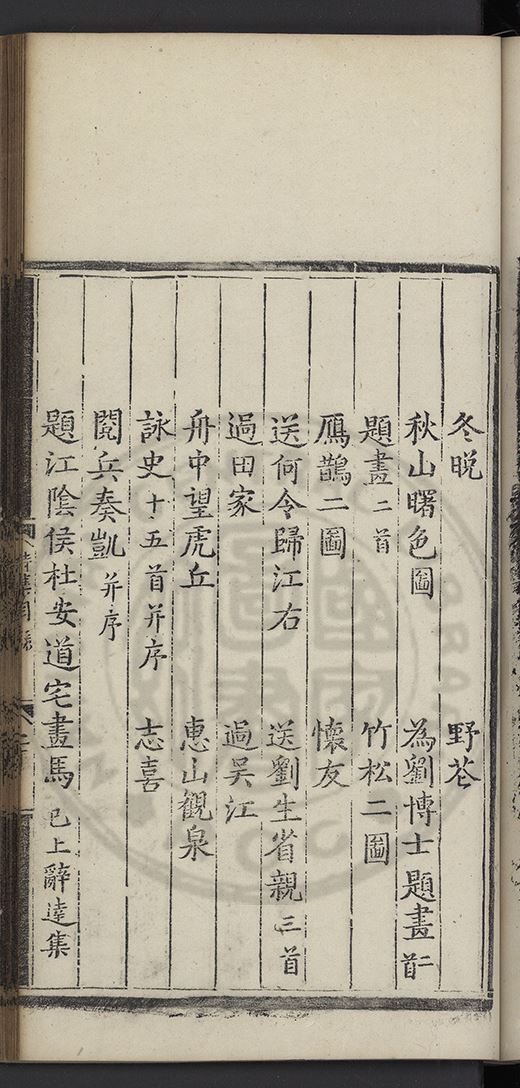 冬晚 野花
秋山曙色圖 為劉博士題畫二首
題畫二首 竹松二圖
鴈鵲二圖 懷友
送何令歸江右 送劉生省親三首
過田家 過吳江
舟中望虎丘 惠山觀泉
詠史十五首并序 志喜
閱兵奏凱并序
題江陰侯杜安道宅畫馬已上辭達集
詩集目錄